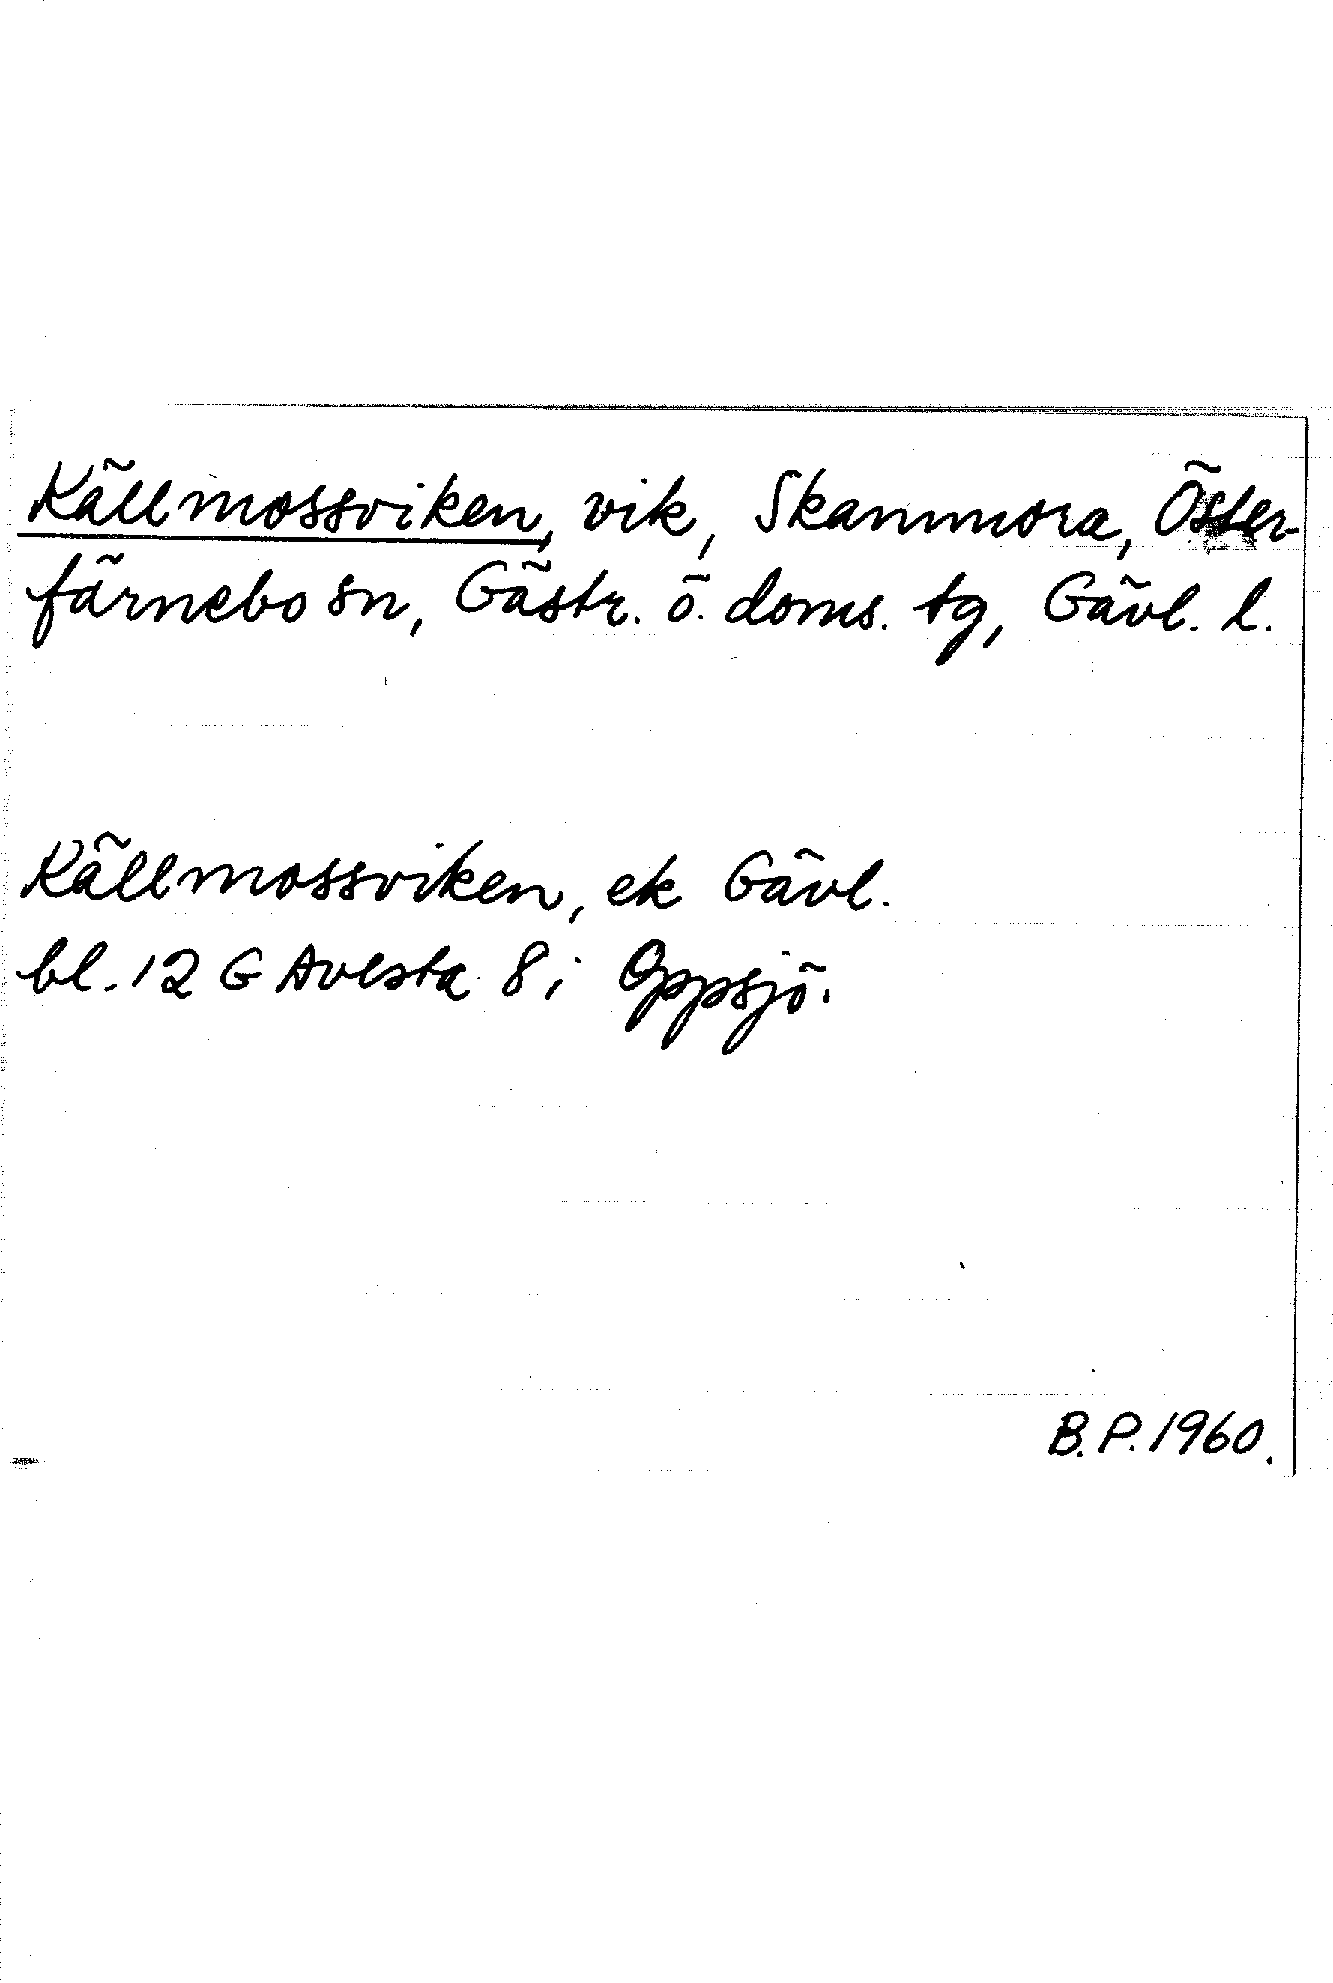 Källmossviken, vik, Skammora, Öster-
färnebo sn, Gästr. ö. doms. tg, Gävl. l.
Källmossviken, ek Gävl.
bl. 12 G Avesta 8 i Oppsjö.
B.P. 1960.